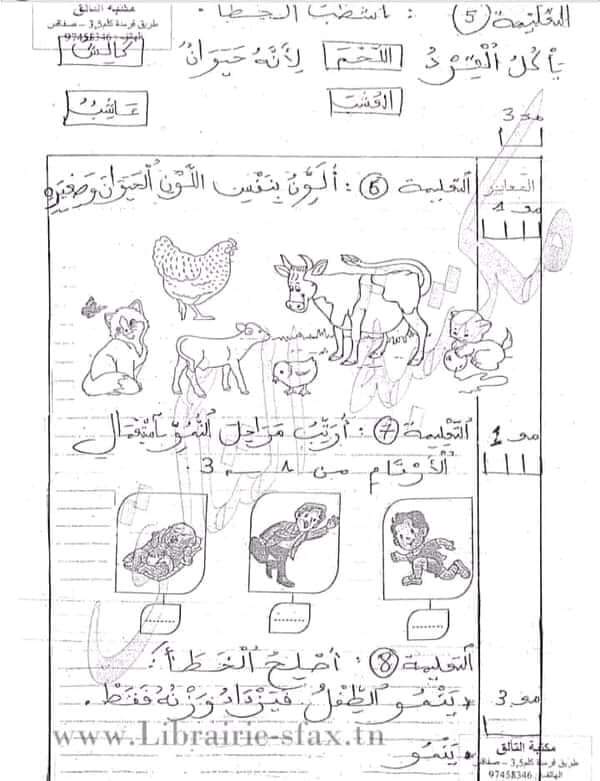 مكتبة التالق
طريق قرمدة كلم 3,5 - صفاقس
الهاتف: 97458346
التعليمة (5) : أشطب الخطأ :
يَأْكُلُ الْقِرْدُ اللَّحْمَ لِأَنَّهُ حَيَوَانٌ
القشت
عَاشِبٌ
مع 3
المعايير
مع 1
التعليمة (6) : أُلَوِّنُ بِنَفْسِ اللَّوْنِ الْحَيَوَانَ وَصَغِيرَهُ
مع 1
التعليمة (7) : أُرَتِّبُ مَرَاحِلَ النُّمُوِّ بِاسْتِعْمَالِ
الْأَرْقَامِ من 1 ← 3 .
........ ........ ........
التعليمة (8) : أُصْلِحُ الْخَطَأَ :
مع 3
* يَنْمُو الطِّفْلُ فَيَزْدَادُ وَزْنُهُ فَقَطْ.
* يَنْمُو
www.Librairie-sfax.tn
مكتبة التالق
طريق قرمدة كلم 3,5 - صفاقس
الهاتف: 97458346